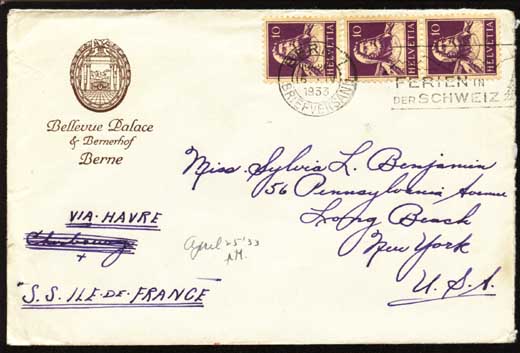 10 HELVETIA
10 HELVETIA
10 HELVETIA
BERN
1933
BRIEFVERSAND
FERIEN IN
DER SCHWEIZ
Bellevue Palace
& Bernerhof
Berne
Miss. Sylvia L. Benjamin
56 Pennsylvania Avenue
Long Beach
New York
U.S.A.
VIA HAVRE
Cherbourg
+
S.S. ILE-DE-FRANCE
April 25 '33